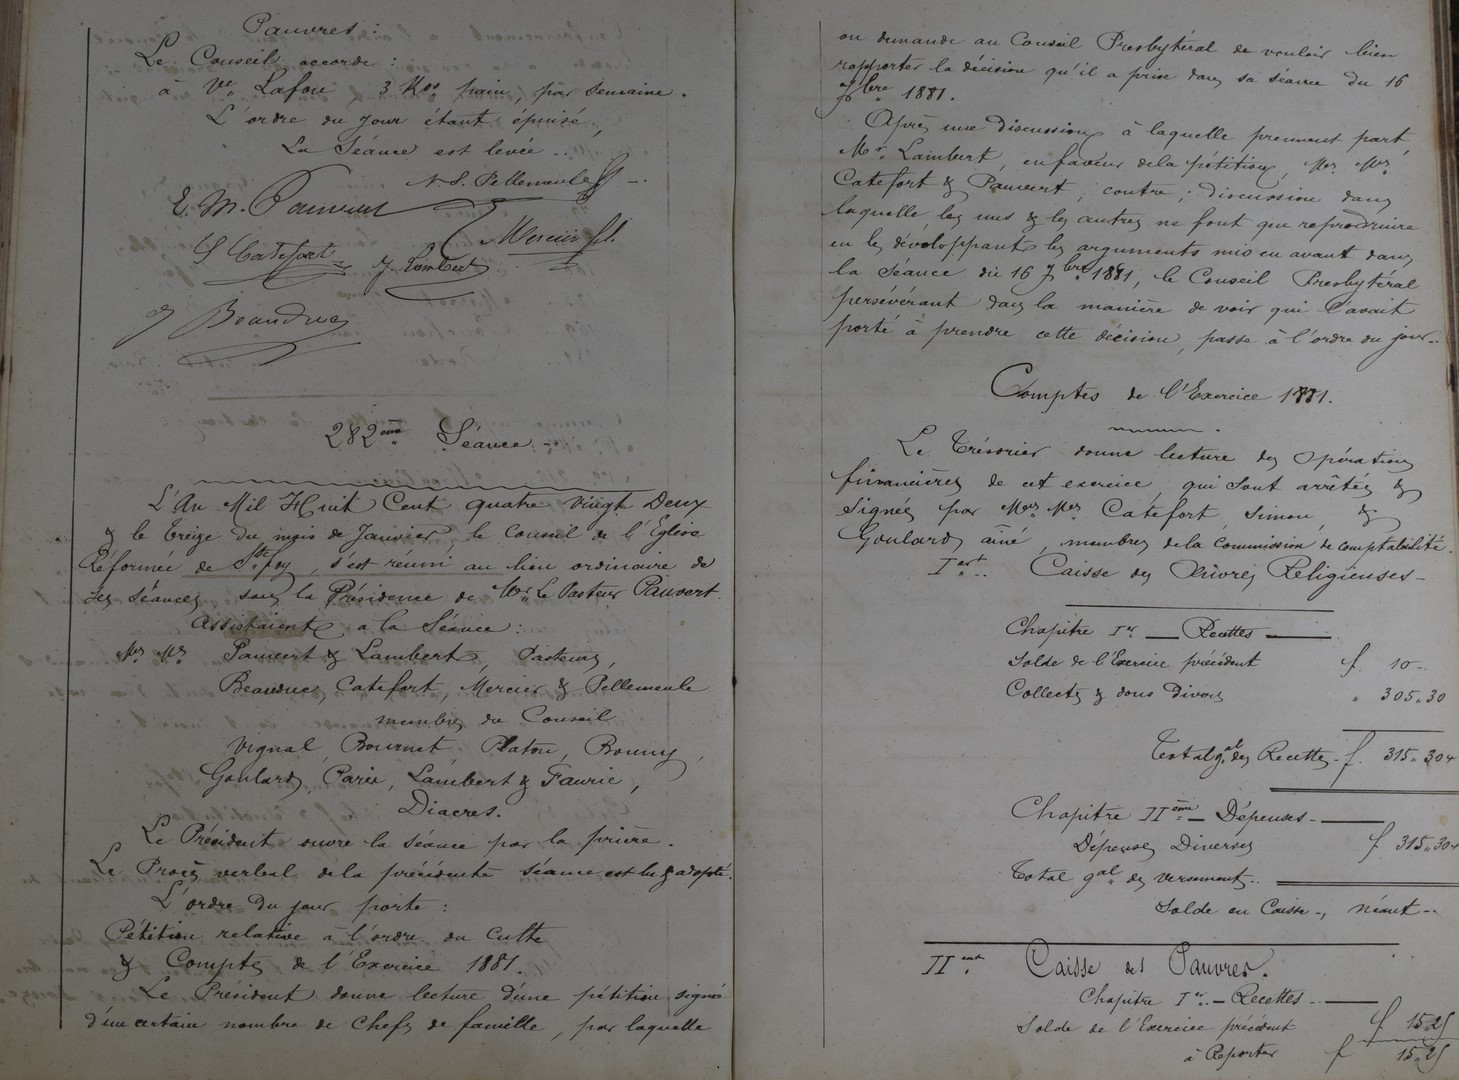 Pauvres :
Le Conseil accorde :
à Vve Lafon, 3 Kos pain, par semaine.
L'ordre du jour étant épuisé,
La Séance est levée -.
N. S. Pellemeule
E. M. Pauvert
Mercier fil.
S Catefort J. Lambert
J Beauduc
282eme Séance -
L'An Mil Huit Cent quatre vingt Deux
& le Treize du mois de Janvier le Conseil de l'Eglise
Réformée de Ste foy, s'est réuni au lieu ordinaire de
ses séances sous la Présidence de Mr. Le Pasteur Pauvert.
Assistaient a la Séance :
Mrs Mrs Pauvert & Lambert, Pasteurs,
Beauduc, Catefort, Mercier & Pellemeule
membres du Conseil
Vignal, Bournet, Platon, Bonny,
Goulard, Paris, Lambert & Faurie,
Diacres.
Le Président ouvre la séance par la prière.
Le Procès verbal de la précédente séance est lu & adopté.
L'ordre du jour porte :
Pétition relative à l'ordre du Culte
& Comptes de l'Exercice 1881.
Le Président donne lecture d'une pétition signée
d'un certain nombre de Chefs de famille, par laquelle
on demande au Conseil Presbytéral de vouloir bien
rapporter la décision qu'il a prise dans sa séance du 16
7bre 1881.
Après une Discussion à laquelle prennent part
Mr. Lambert, en faveur de la pétition, Mrs Mrs
Catefort & Pauvert, contre ; discussion dans
laquelle les uns & les autres ne font que reproduire
en les développant les arguments mis en avant dans
la Séance du 16 7bre 1881, le Conseil Presbytéral
persévérant dans la manière de voir qui l'avait
porté à prendre cette décision, passe à l'ordre du jour -.
Comptes de l'Exercice 1881.
Le Trésorier donne lecture des Opérations
financières de cet exercice qui sont arrêtées &
Signées par Mrs Mrs Catéfort, Simon, &
Goulard ainé, membres de la Commission de comptabilité.
Ient.. Caisse des Œuvres Religieuses -
Chapitre Ier — Recettes —
Solde de l'Exercice précédent f 10 -
Collectes & dons Divers " 305.. 30
Total gal des Recettes - f. 315.. 30
Chapitre IIème — Dépenses -
Dépenses Diverses f 315.. 30
Total gal des versements..
Solde en Caisse -, néant -.
IIent Caisse des Pauvres.
Chapitre Ier.. — Recettes -.
Solde de l'Exercice précédent f 15.. 25
à Reporter f 15.. 25